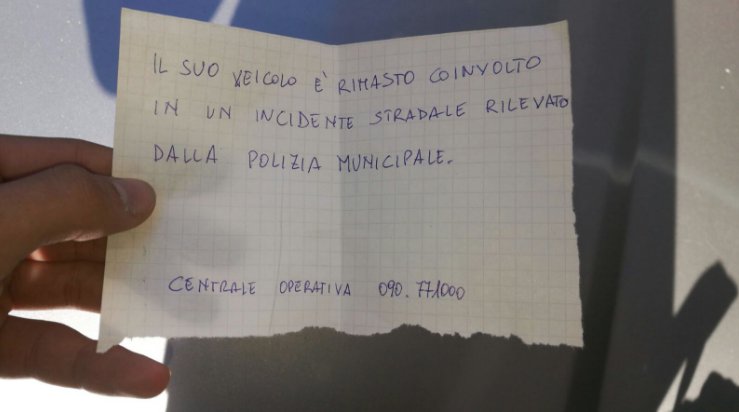 IL SUO VEICOLO È RIMASTO COINVOLTO
IN UN INCIDENTE STRADALE RILEVATO
DALLA POLIZIA MUNICIPALE.
CENTRALE OPERATIVA 090.771000